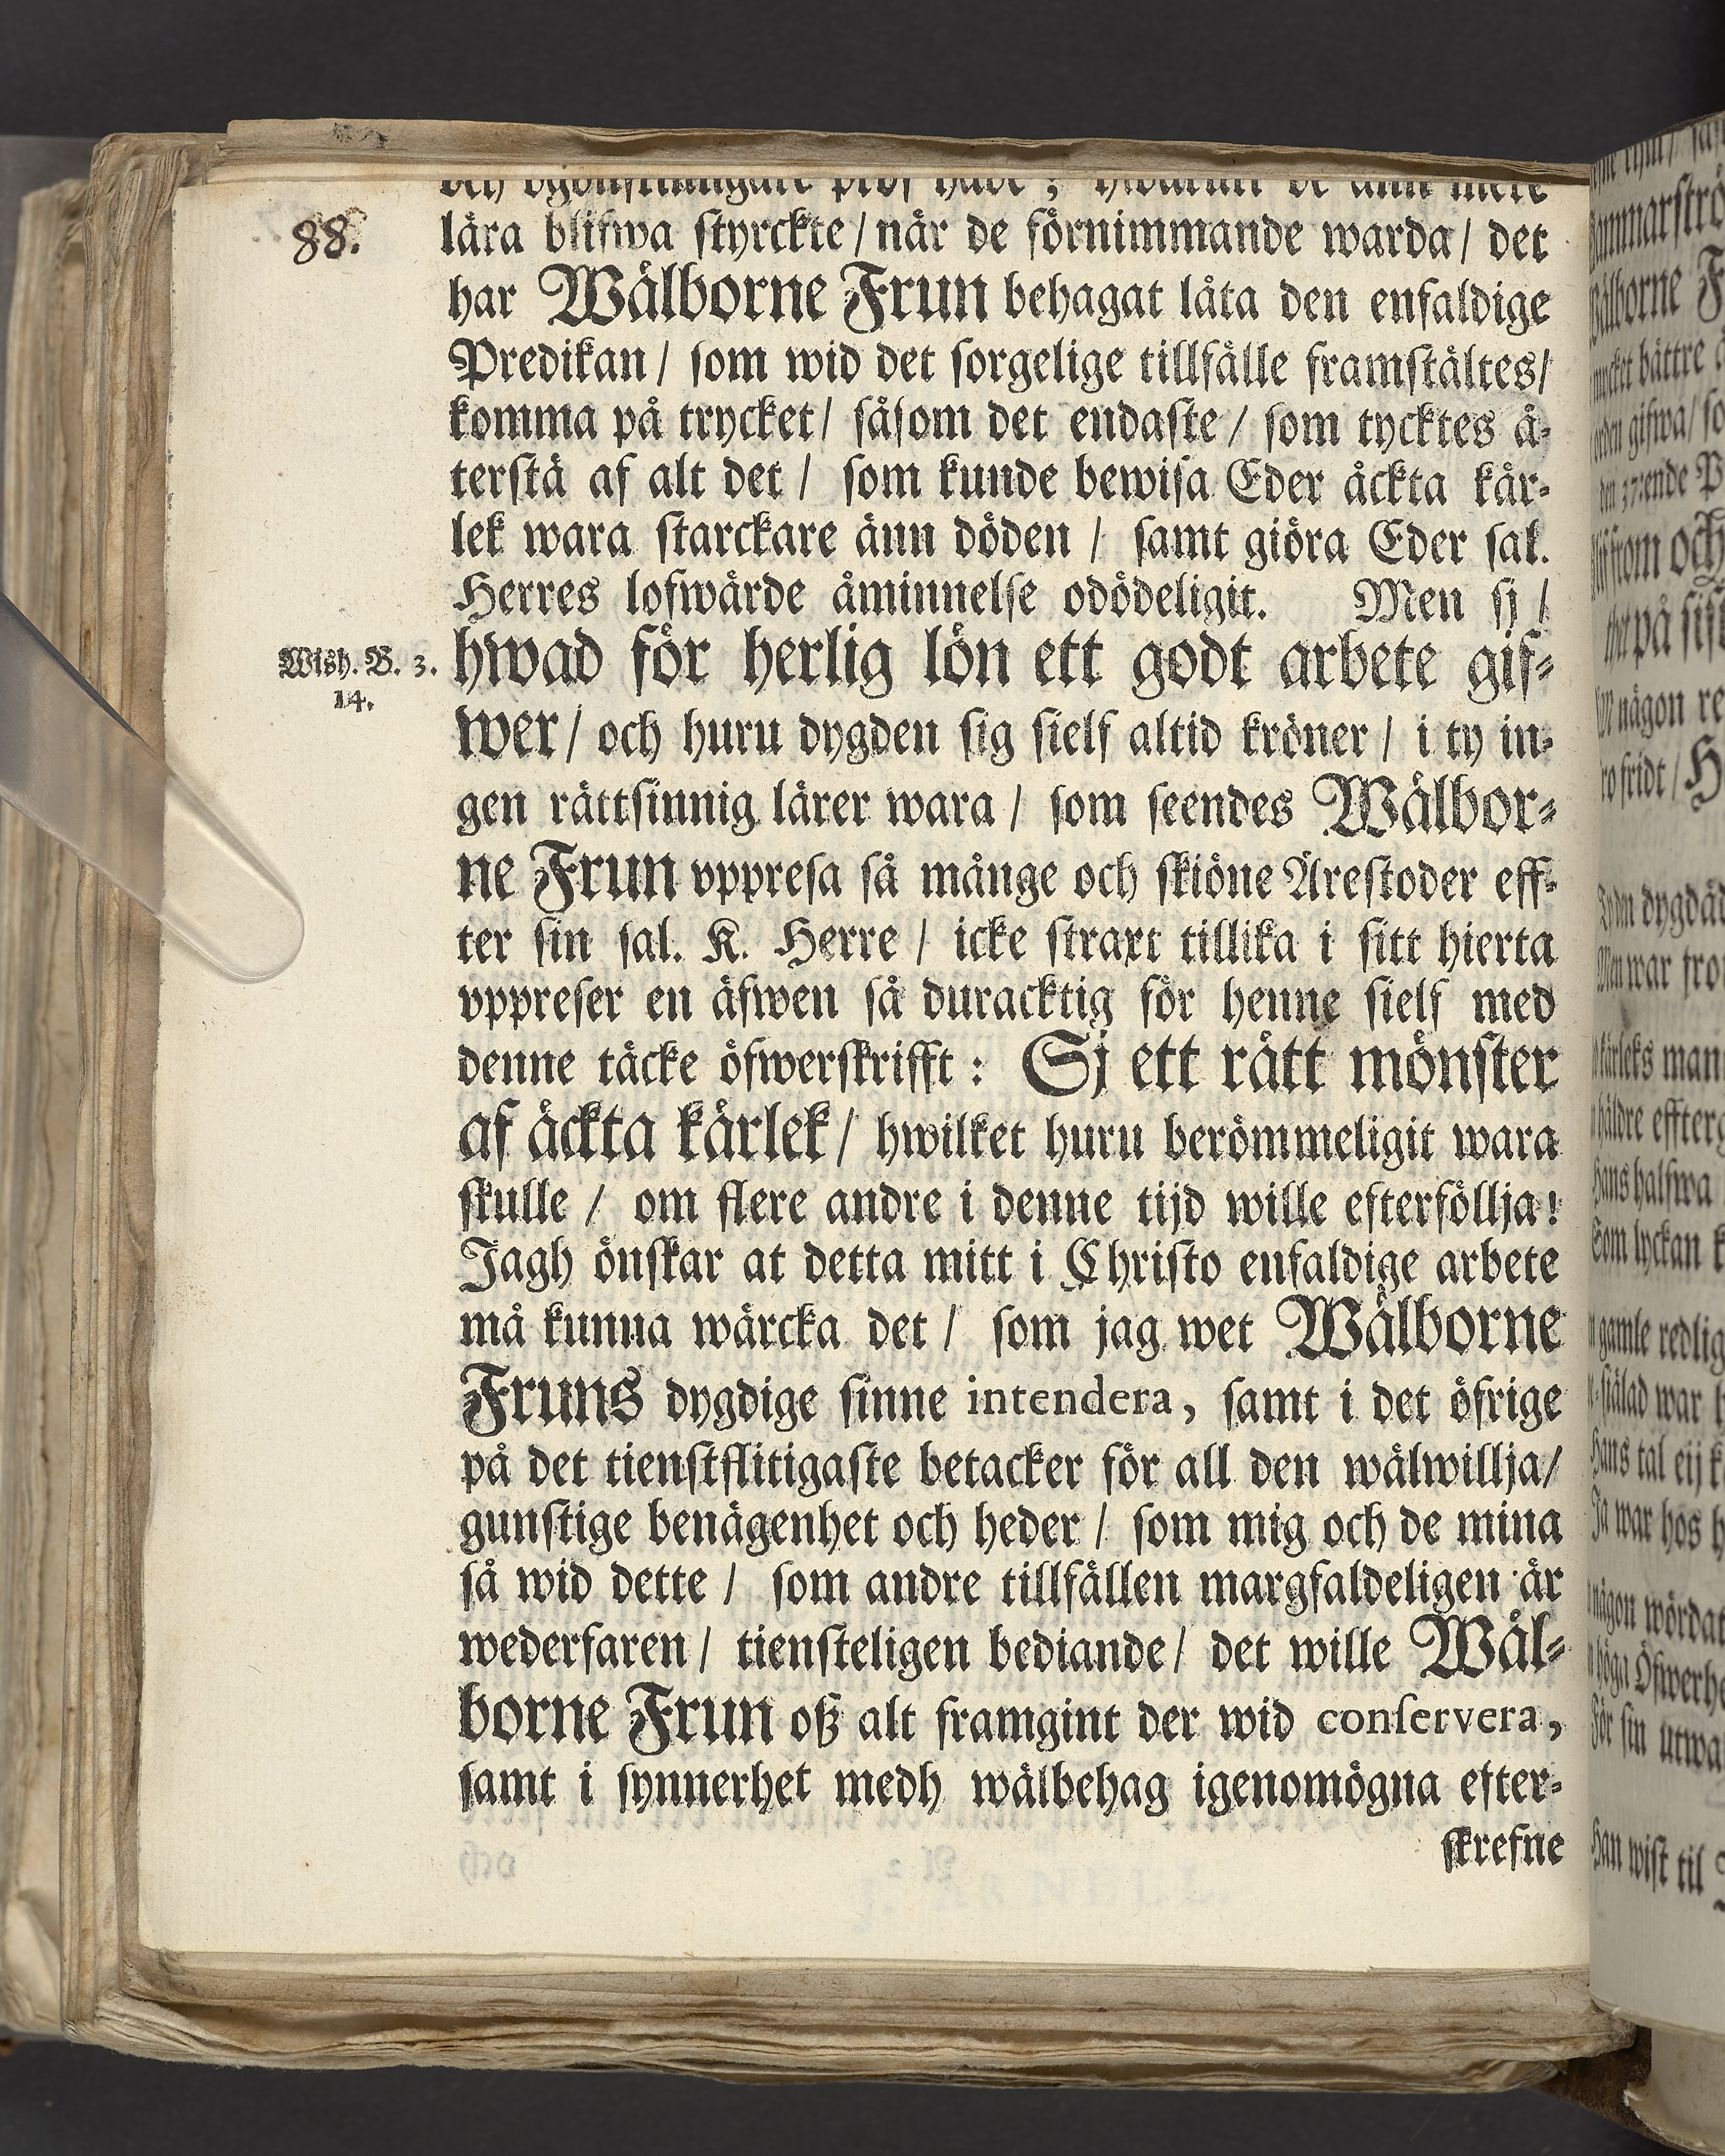 88.
lära blifwa styrckte / när de förnimmande warda / det
har Wälborne Frun behagat låta den enfaldige
Predikan / som wid det sorgelige tillfälle framstältes /
komma på trycket / såsom det endaste / som tycktes å-
terstå af alt det / som kunde bewisa Eder äckta kär-
lek wara starckare änn döden / samt giöra Eder sal.
Herres lofwärde åminnelse odödeligit. Men sj /
Wish. B. 3.
14.
hwad för herlig lön ett godt arbete gif-
wer / och huru dygden sig sielf altid kröner / i ty in-
gen rättsinnig lärer wara / som seendes Wälbor-
ne Frun vppresa så månge och skiöne Ärestoder eff-
ter sin sal. K. Herre / icke straxt tillika i sitt hierta
vppreser en äfwen så duracktig för henne sielf med
denne täcke öfwerskrifft : Sj ett rätt mönster
af äckta kärlek / hwilket huru berömmeligit wara
skulle / om flere andre i denne tijd wille efterföllja!
Jagh önskar at detta mitt i Christo enfaldige arbete
må kunna wärcka det / som jag wet Wälborne
Fruns dygdige sinne intendera, samt i det öfrige
på det tienstflitigaste betacker för all den wälwillja /
gunstige benägenhet och heder / som mig och de mina
så wid dette / som andre tillfällen margfaldeligen är
wederfaren / tiensteligen bediande / det wille Wäl-
borne Frun oß alt framgint der wid conservera,
samt i synnerhet medh wälbehag igenomögna efter-
skrefne